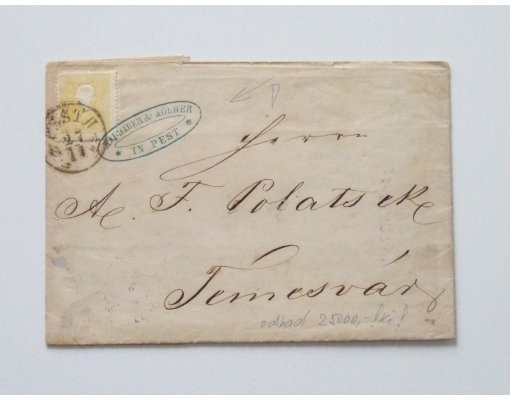 PESTH
27
11
& HOLBER
* IN PEST *
Herrn
A. F. Polatsek
Temesvár
odhad 25000,-